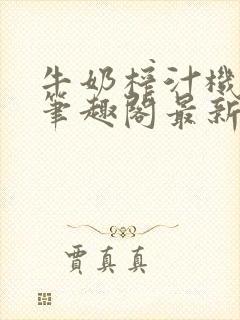 牛奶榨汁機
筆趣閣最新
賈真真